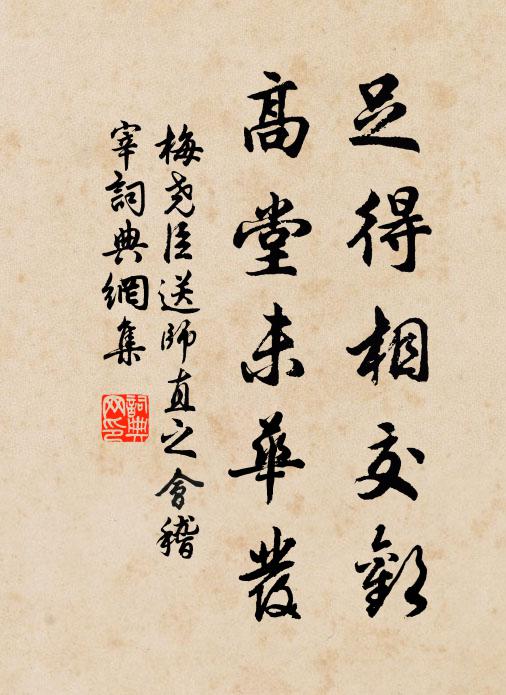 足得相交歡
高堂未華發
梅堯臣送師直之會稽
宰詞典網集
詞典網印